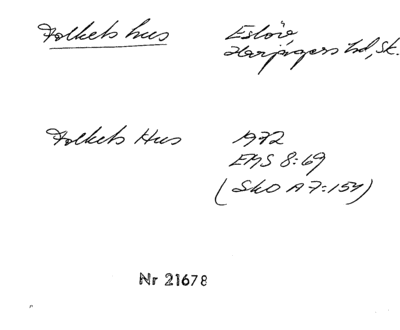 Folkets hus Eslöv,
Harjagers hd, Sk.
Folkets Hus 1972
EMS 8:69
(SkO A7:154)
Nr 21678